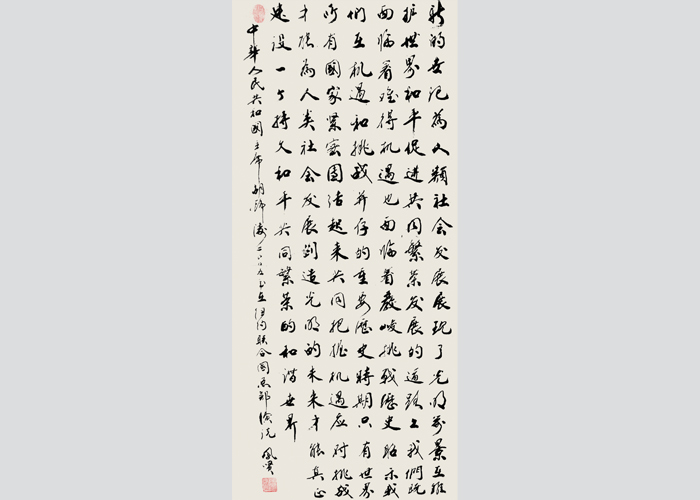 新的世纪为人类社会发展展现了光明前景在维
护世界和平促进共同繁荣发展的道路上我们既
面临着难得机遇也面临着严峻挑战历史昭示我
们在机遇和挑战并存的重要历史时期只有世界
所有國家紧密團结起来共同把握机遇应对挑战
才能為人类社会发展创造光明的未来才能真正
建设一个持久和平共同繁荣的和谐世界
中華人民共和國主席胡錦濤二〇〇五年在纽约联合國总部演说